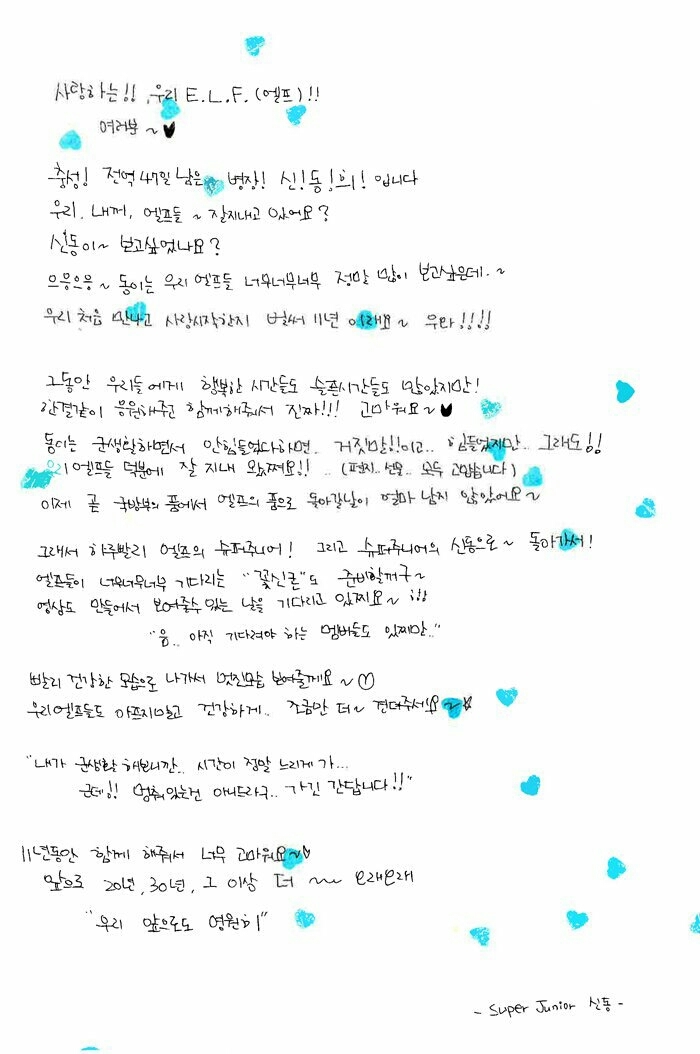 사랑하는!! 우리 E.L.F.(엘프)!!
여러분~♥
충성! 전역 47일 남은~ 병장! 신!동!희! 입니다
우리, 내꺼, 엘프들~ 잘지내고 있어요?
신동이~ 보고싶었나요?
으응으응~ 동이는 우리 엘프들 너무너무너무 정말 많이 보고싶은데.~
우리 처음 만나고 사랑시작한지 벌써 11년 이래요~ 우와!!!!
그동안 우리들에게 행복한 시간들도 슬픈시간들도 많았지만!
한결같이 응원해주고 함께해줘서 진짜!!! 고마워요~♥
동이는 군생활하면서 안힘들었다하면.. 거짓말!!이고.. 힘들었지만.. 그래도!!
우리엘프들 덕분에 잘 지내 왔쪄요!! .. (편지..선물.. 모두 고맙습니다)
이제 곧 국방부의 품에서 엘프의 품으로 돌아갈날이 얼마 남지 않았어요~
그래서 하루빨리 엘프의 슈퍼주니어! 그리고 슈퍼주니어의 신동으로~ 돌아가서!
엘프들이 너무너무너무 기다리는 "꽃신콘"도 준비할꺼구~
영상도 만들어서 보여줄수 있는 날을 기다리고 있찌요~ !!!
"음.. 아직 기다려야 하는 멤버들도 있찌만.."
빨리 건강한 모습으로 나가서 멋진모습 보여줄게요~♡
우리엘프들도 아프지말고 건강하게.. 조금만 더~ 견뎌주세요~♥
"내가 군생활 해보니깐.. 시간이 정말 느리게 가...
근데!! 멈춰있는건 아니드라구.. 가긴 간답니다!!"
11년동안 함께 해줘서 너무 고마워요~♡
앞으로 20년, 30년, 그 이상 더 ~~ 오래오래
"우리 앞으로도 영원히"
- Super Junior 신동 -